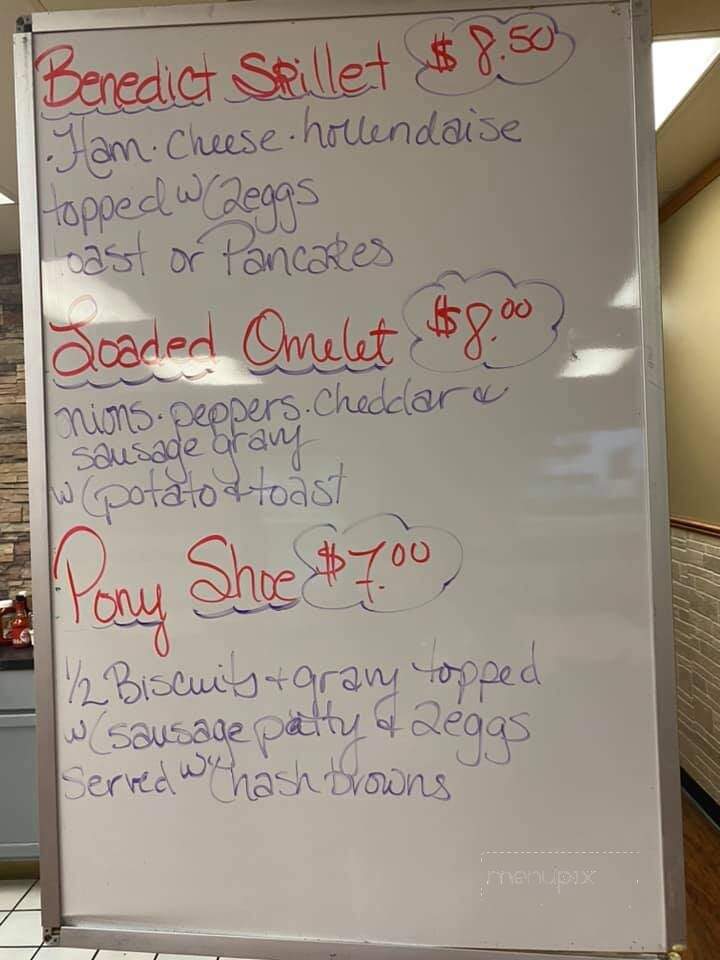 Benedict Skillet $8.50
·Ham·cheese·hollendaise
topped w/ 2eggs
toast or Pancakes
Loaded Omelet $8.00
onions·peppers·cheddar &
sausage gravy
w/ potato & toast
Pony Shoe $7.00
1/2 Biscuits + gravy topped
w/ sausage patty & 2eggs
Served w/ hash browns
menupix